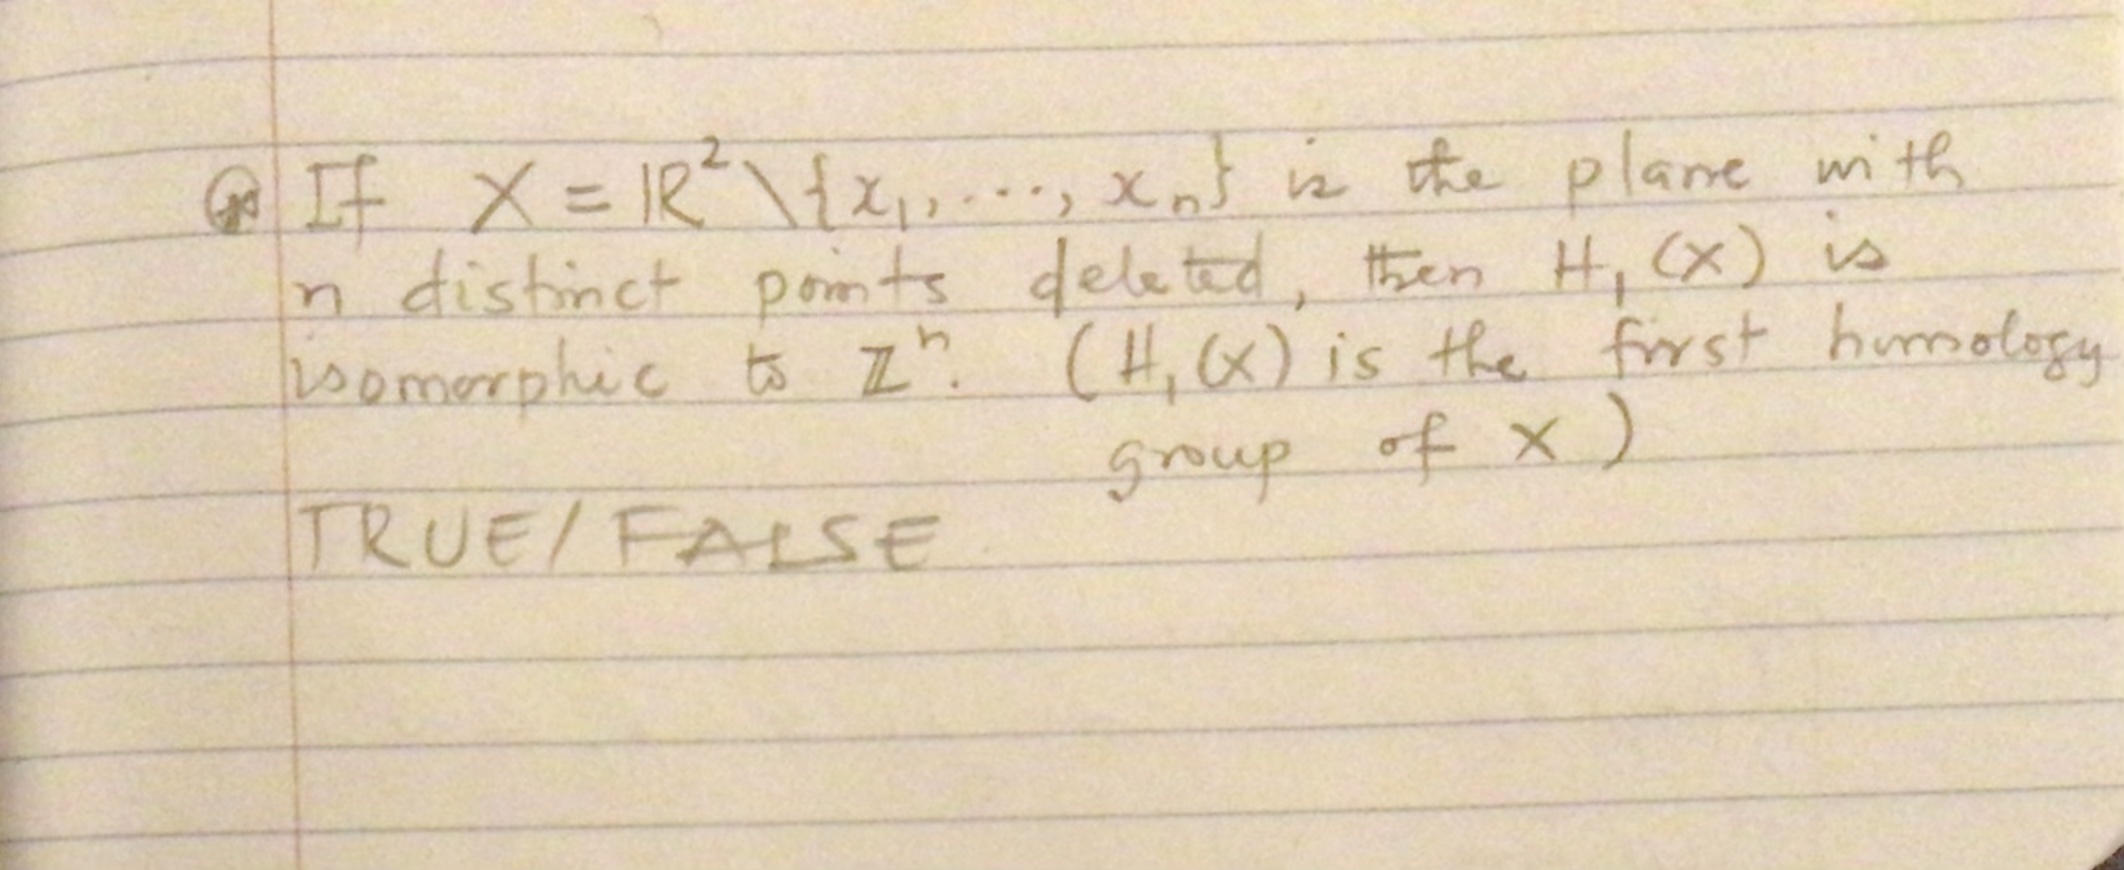 If X = ℝ²\{x₁, ..., xₙ} is the plane with
n distinct points deleted, then H₁(X) is
isomorphic to ℤⁿ. (H₁(X) is the first homology
group of X)
TRUE/FALSE